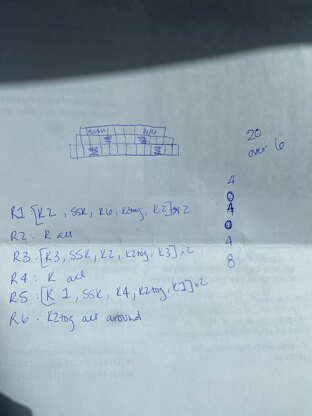 20
over 6
4
0
4
0
4
8
R1: [K2, SSK, K6, K2tog, K2] x 2
R2: K all
R3: [K3, SSK, K2, K2tog, K3], x2
R4: K all
R5: [K 1, SSK, K4, K2tog, K1] x2
R6: K2tog all around